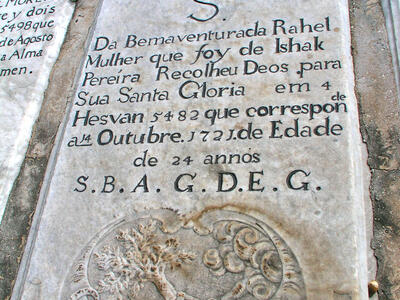 S.
Da Bemaventurada Rahel
Mulher que foy de Ishak
Pereira Recolheu Deos para
Sua Santa Gloria em 4 de
Hesvan 5482 que correspon
a 14 Outubre. 1721. de Edade
de 24 annos
S. B. A. G. D. E. G.
y dois
5498 que
de Agosto
a Alma
men.